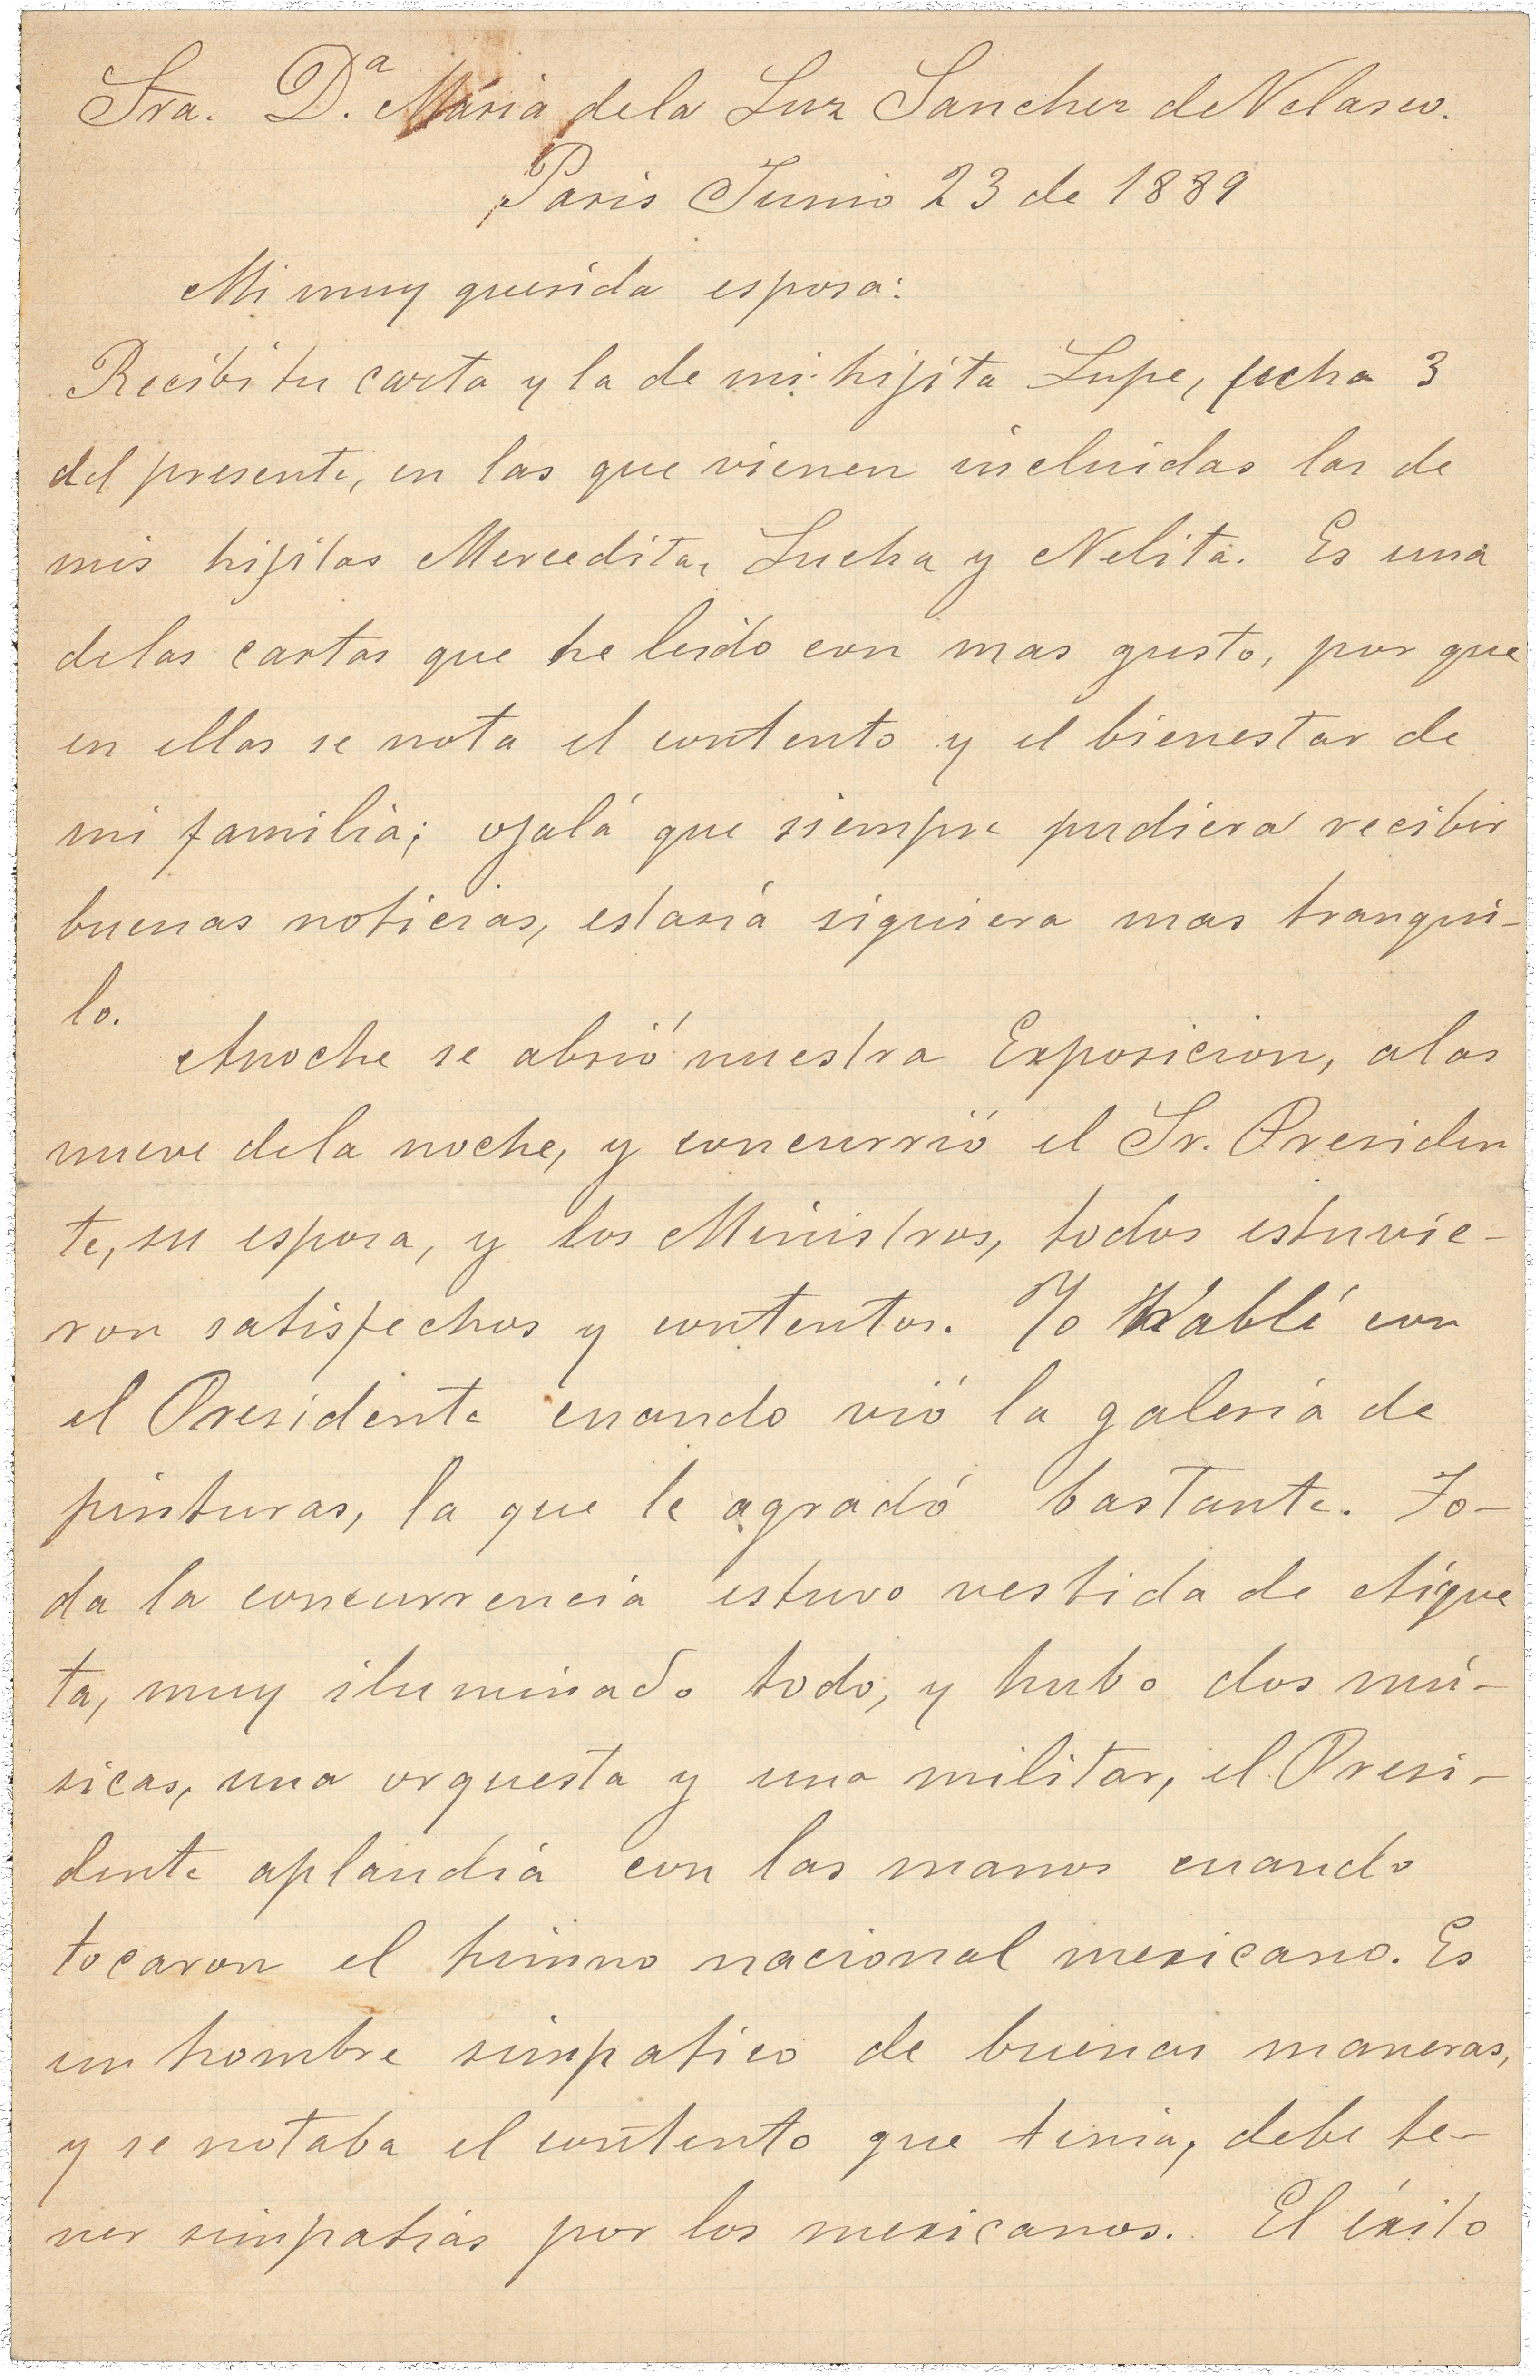 Sra. D.ª Maria dela Luz Sanchez de Velasco.
Paris Junio 23 de 1889
Mi muy querida esposa:
Recibi tu carta y la de mi hijita Lupe, fecha 3
del presente, en las que vienen incluidas las de
mis hijitas Merceditas, Lucha y Nelita. Es una
delas cartas que he leido con mas gusto, por que
en ellas se nota el contento y el bienestar de
mi familia; ojalá que siempre pudiera recibir
buenas noticias, estaria siquiera mas tranqui-
lo.
Anoche se abrió nuestra Exposicion, alas
nueve dela noche, y concurrió el Sr. Presiden
te, su esposa, y los Ministros, todos estuvie-
ron satisfechos y contentos. Yo Hablé con
el Presidente cuando vió la galeria de
pinturas, la que le agradó bastante. To-
da la concurrencia estuvo vestida de etique
ta, muy iluminado todo, y hubo dos mú-
sicas, una orquesta y una militar, el Presi-
dente aplaudia con las manos cuando
tocaron el himno nacional mexicano. Es
un hombre simpatico de buenas maneras,
y se notaba el contento que tenia, debe te-
ner simpatias por los mexicanos. El éxito